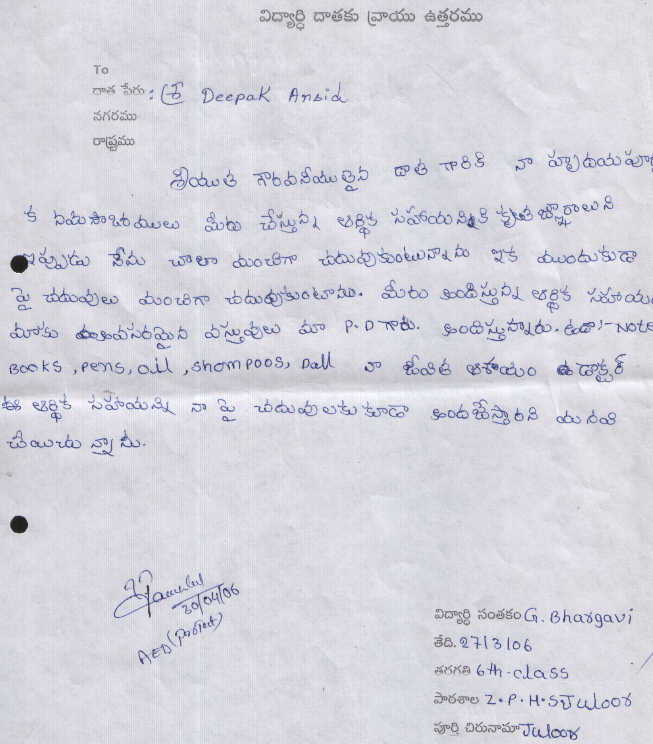 విద్యార్థి దాతకు వ్రాయు ఉత్తరము
To
దాత పేరు : శ్రీ Deepak Ansid
నగరము
రాష్ట్రము
శ్రీయుత గౌరవనీయులైన దాత గారికి నా హృదయపూర్వ
క నమస్కారములు మీరు చేస్తున్న ఆర్థిక సహాయన్నికి కృతజ్ఞురాలుని
ఇప్పుడు నేను చాలా మంచిగా చదువుకుంటున్నాను ఇక ముందుకుడా
పై చదువులు మంచిగా చదువుకుంటాను. మీరు అందిస్తున్న ఆర్థిక సహాయ
మాకు అవసరమైన వస్తువులు మా P.D గారు. అందిస్తున్నారు. ఉదా:- Note
Books, pens, oil, shompoos, Dall నా జీవిత ఆశాయం డాక్టర్
ఈ ఆర్థిక సహాయన్ని నా పై చదువులకు కుడా అందజేస్తారని మనవి
చేయుచున్నాను.
20/04/06
AED (Project)
విద్యార్థి సంతకం G. Bhargavi
తేది. 27/3/06
తరగతి 6th-class
పాఠశాల Z.P.H.S Juloor
పూర్తి చిరునామా Juloor